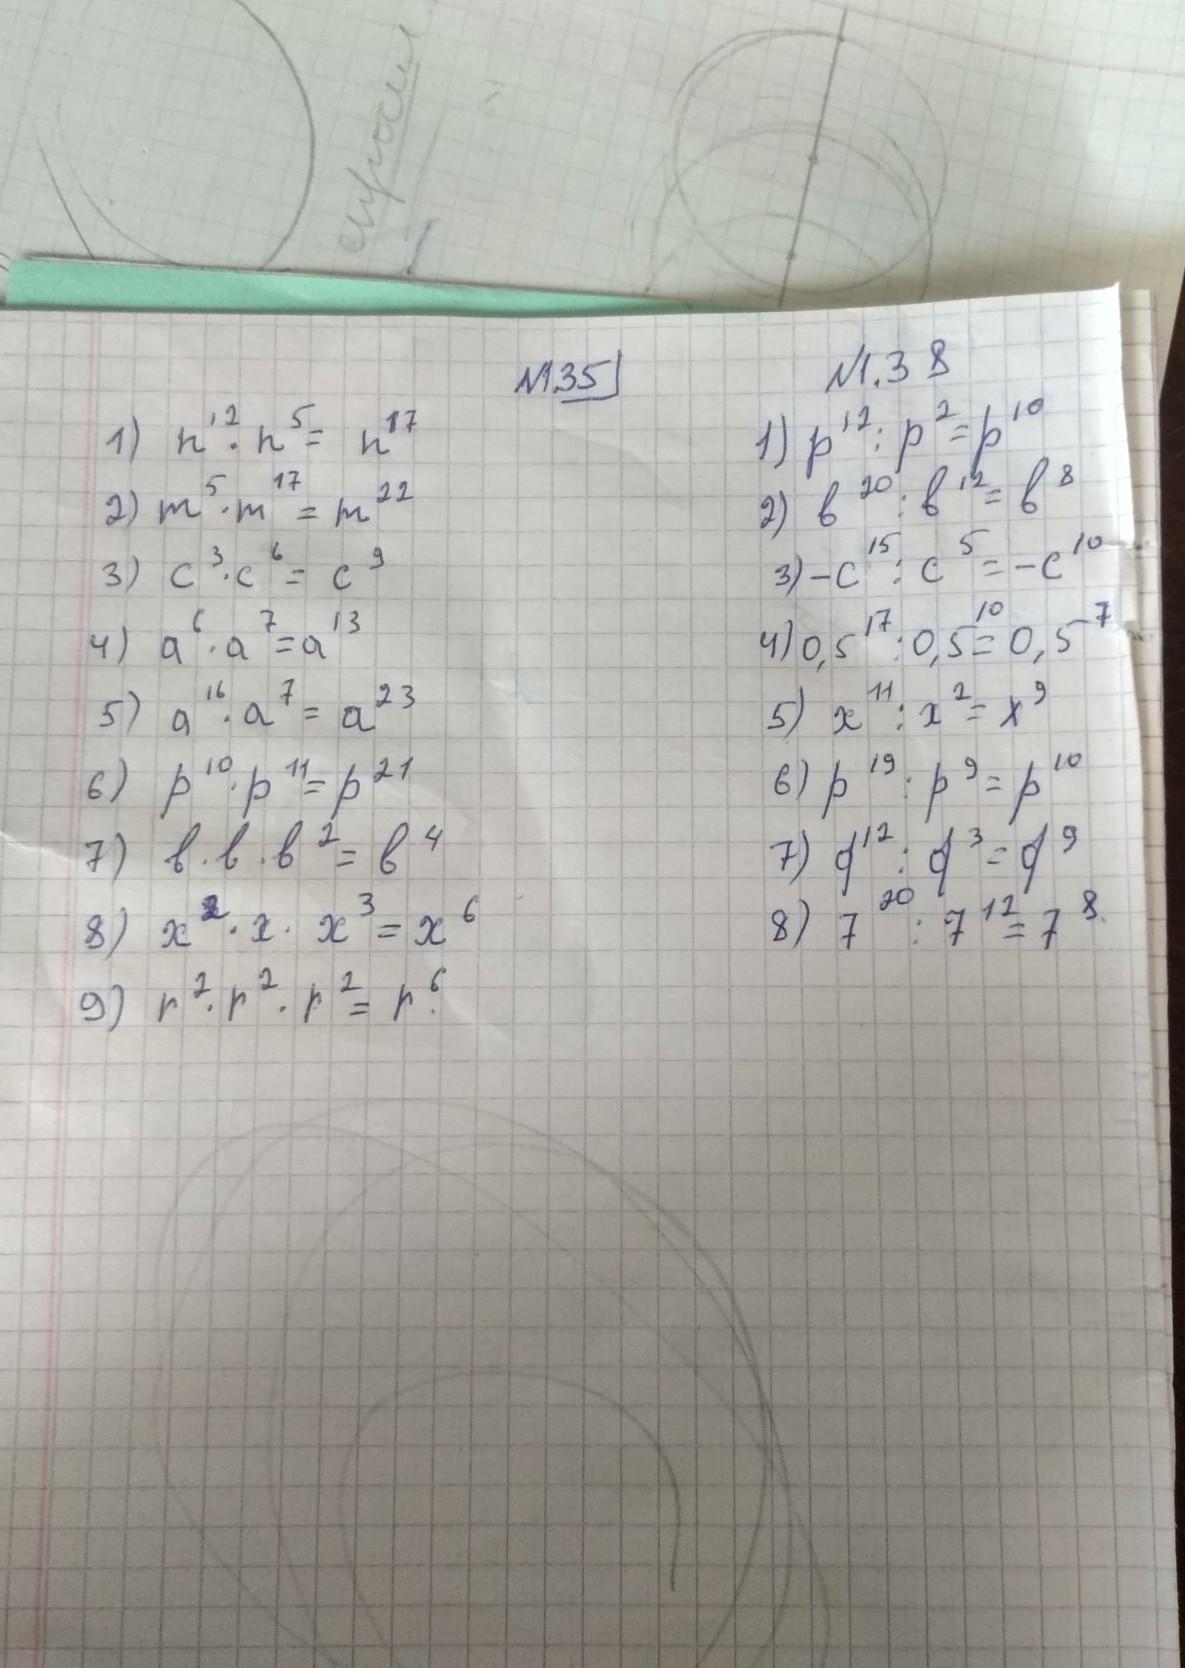 №1.35
1) n¹² · n⁵ = n¹⁷
2) m⁵ · m¹⁷ = m²²
3) c³ · c⁶ = c⁹
4) a⁶ · a⁷ = a¹³
5) a¹⁶ · a⁷ = a²³
6) p¹⁰ · p¹¹ = p²¹
7) b · b · b² = b⁴
8) x² · x · x³ = x⁶
9) r² · r² · r² = r⁶.
№1.38
1) p¹² : p² = p¹⁰
2) b²⁰ : b¹² = b⁸
3) -c¹⁵ : c⁵ = -c¹⁰
4) 0,5¹⁷ : 0,5¹⁰ = 0,5⁷
5) x¹¹ : x² = x⁹
6) p¹⁹ : p⁹ = p¹⁰
7) q¹² : q³ = q⁹
8) 7²⁰ : 7¹² = 7⁸.